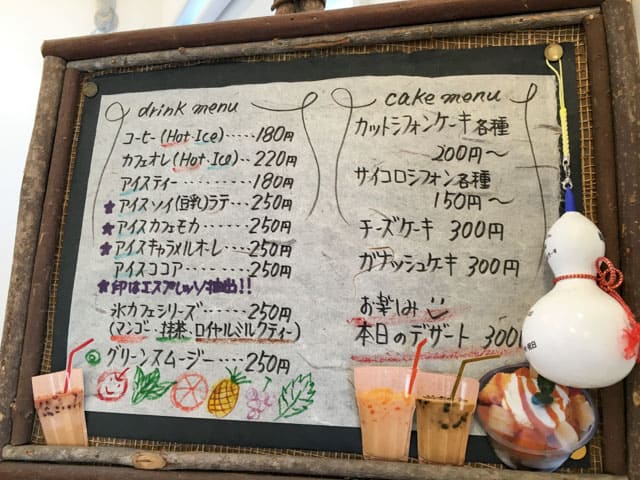 drink menu
コーヒー(Hot・Ice)・・・・・180円
カフェオレ(Hot・Ice)・・220円
アイスティー・・・・・・・180円
★アイスソイ(豆乳)ラテ・・・250円
★アイスカフェモカ・・・・・250円
★アイスキャラメルオーレ・・・250円
アイスココア・・・・・・・250円
★印はエスプレッソ抽出!!
氷カフェシリーズ・・・・・250円
(マンゴー・抹茶・ロイヤルミルクティー)
グリーンスムージー・・・・・250円
cake menu
カットシフォンケーキ各種
200円〜
サイコロシフォン各種
150円〜
チーズケーキ 300円
ガナッシュケーキ 300円
お楽しみ
本日のデザート 300